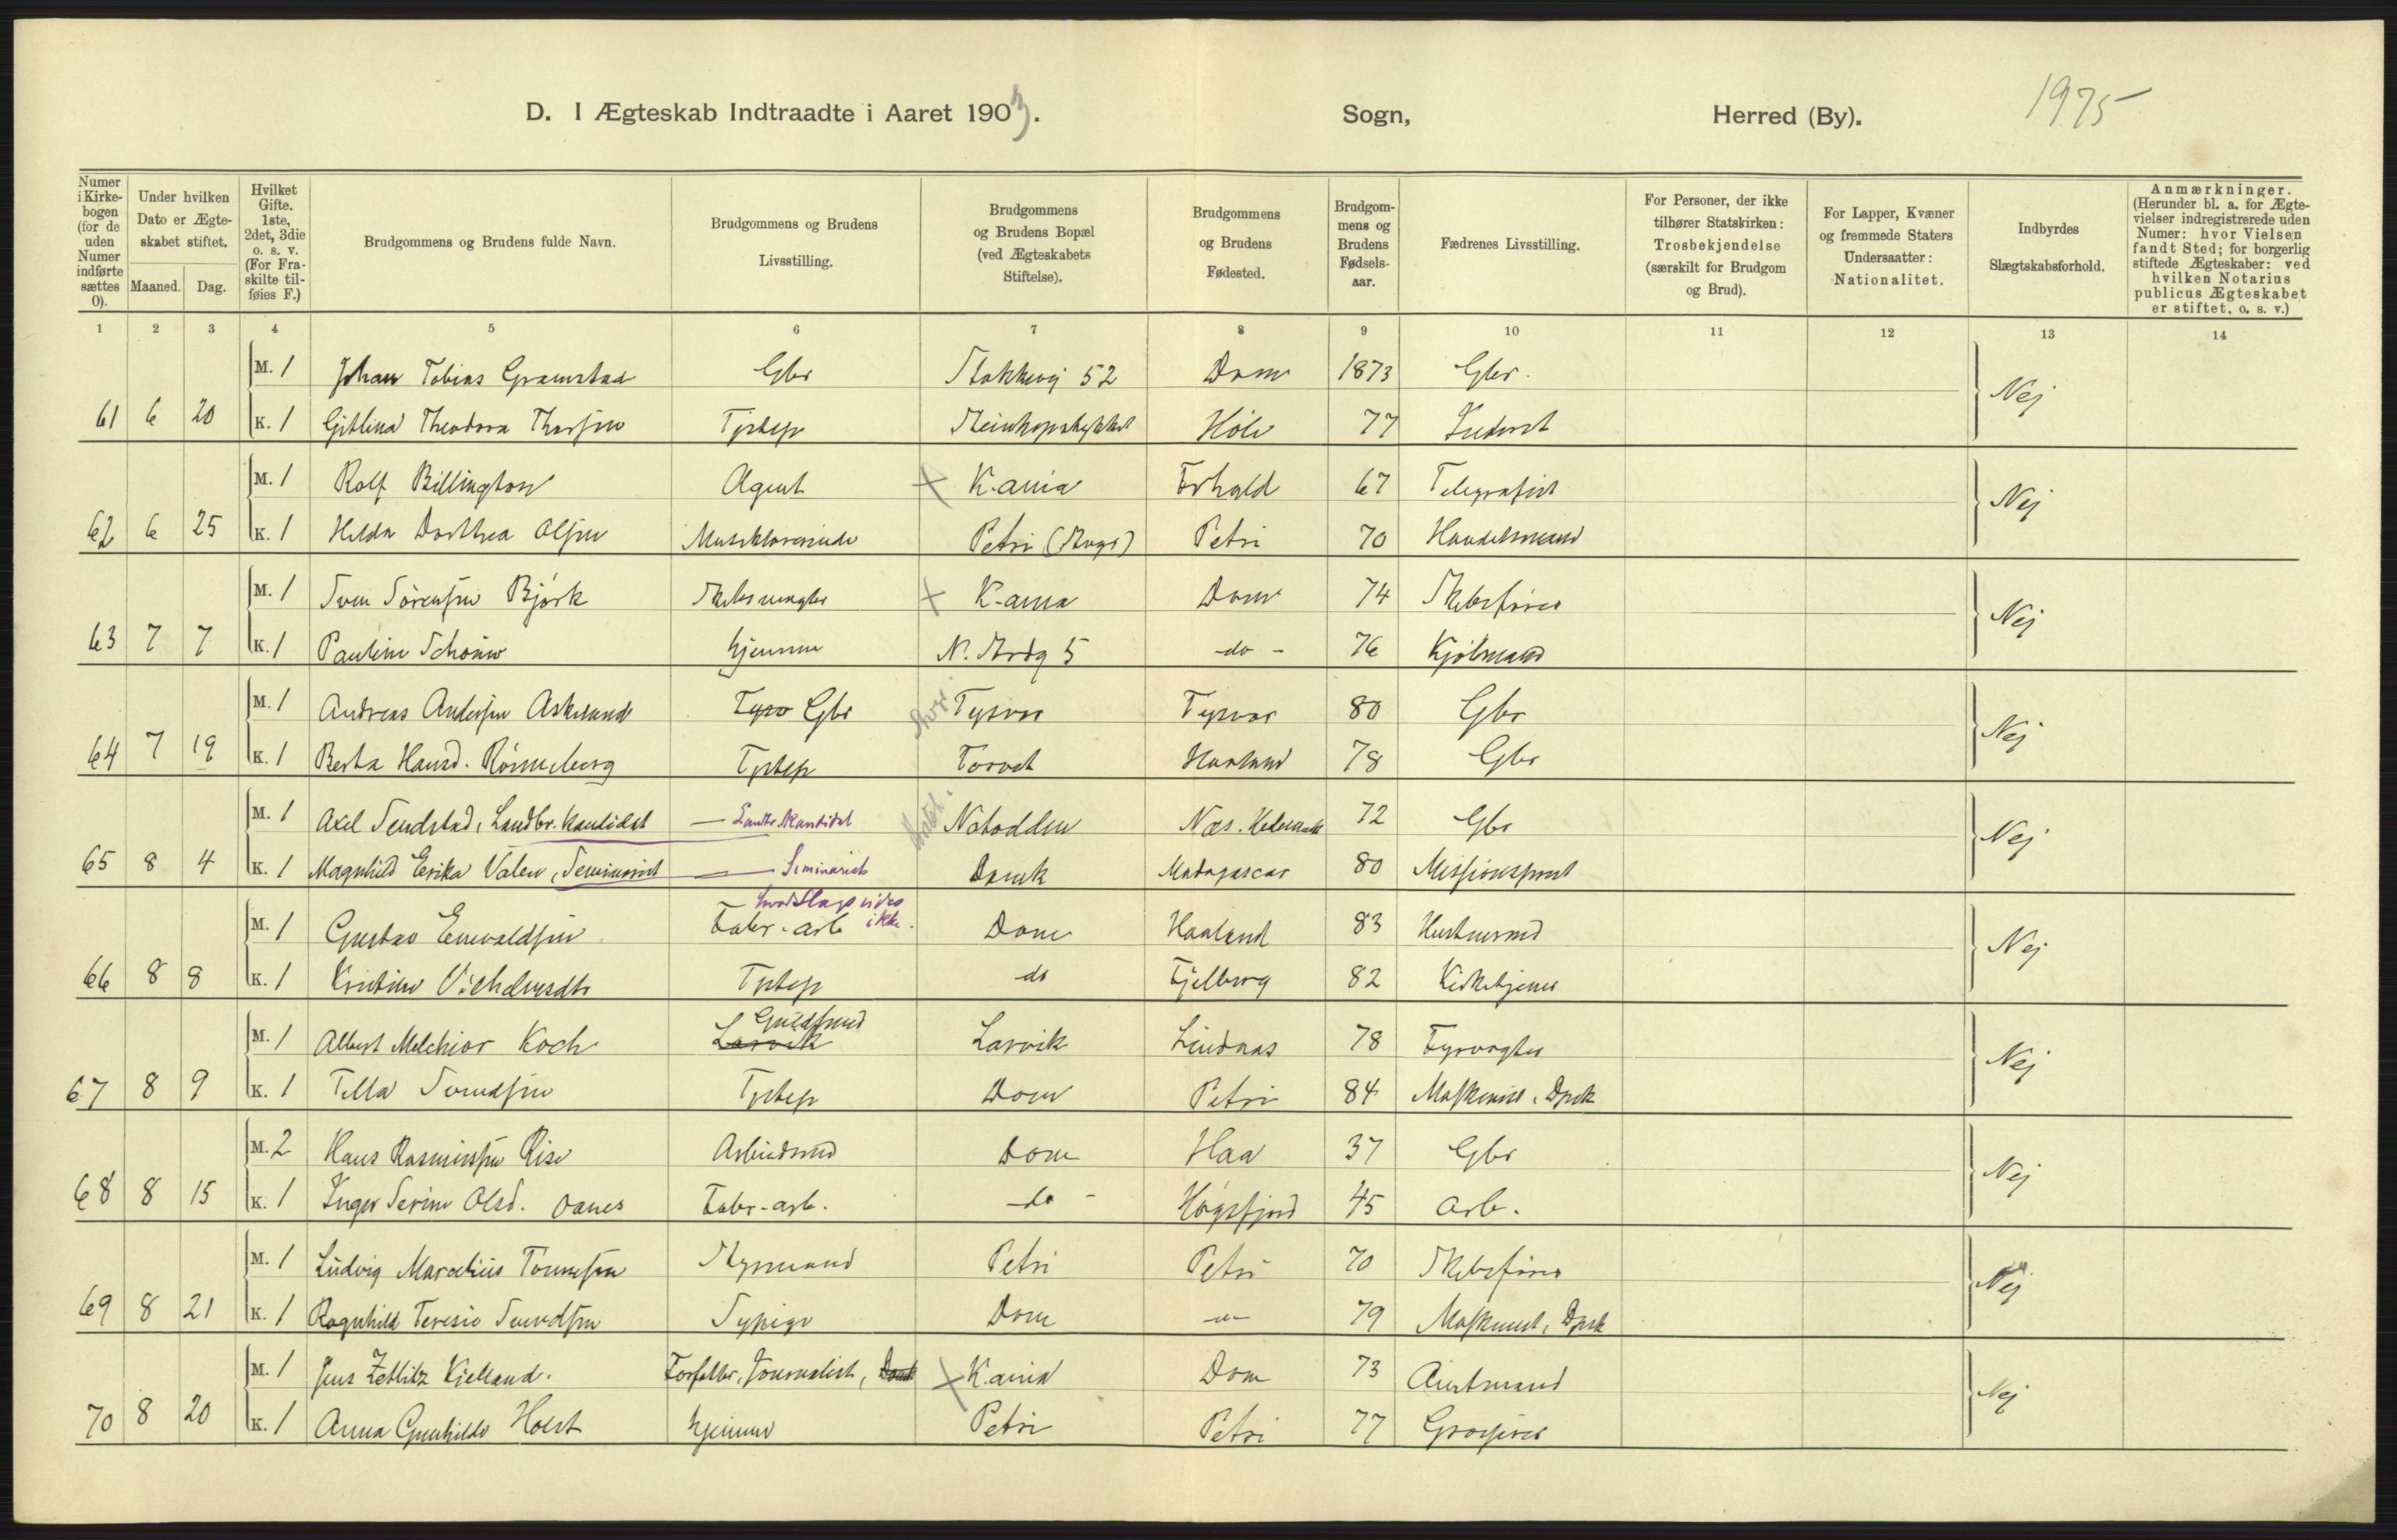 1975
D. I Ægteskab Indtraadte i Aaret 1903. Sogn, Herred (By).
Numer i Kirkebogen (for de uden Numer indførte sættes 0).
Under hvilken Dato er Ægteskabet stiftet.
Maaned. Dag.
Hvilket Gifte. 1ste, 2det, 3die o. s. v. (For Fraskilte tilføies F.)
Brudgommens og Brudens fulde Navn.
Brudgommens og Brudens Livsstilling.
Brudgommens og Brudens Bopæl (ved Ægteskabets Stiftelse).
Brudgommens og Brudens Fødested.
Brudgommens og Brudens Fødselsaar.
Fædrenes Livsstilling.
For Personer, der ikke tilhører Statskirken: Trosbekjendelse (særskilt for Brudgom og Brud).
For Lapper, Kvæner og fremmede Staters Undersaatter: Nationalitet.
Indbyrdes Slægtskabsforhold.
Anmærkninger. (Herunder bl. a. for Ægtevielser indregistrerede uden Numer: hvor Vielsen fandt Sted; for borgerlig stiftede Ægteskaber: ved hvilken Notarius publicus Ægteskabet er stiftet, o. s. v.)
1 2 3 4 5 6 7 8 9 10 11 12 13 14
M. 1 Johan Tobias Gramstad Gbr Stokkevej 52 Dom 1873 Gbr. Nej
61 6 20 K. 1 Gitlina Theodora Thorsen Tjstep Höle 77
M. 1 Rolf Billington Agent K.ania 67 Telegrafist Nej
62 6 25 K. 1 Helda Dorthea Olsen Petri 70 Handelsmand
M. 1 Sven Sörensen Björk K.ania Dom 74 Skibsfører Nej
63 7 7 K. 1 Pauline Schöine hjemme N. Strdg 5 do - 76 Kjölmand
M. 1 Andreas Andersen Askelund Gbr Tysvær Tysvær 80 Gbr Nej
64 7 19 K. 1 Berta Hansd. Rönneberg Tjstep Torvet Haaland 78 Gbr
M. 1 Axel Sendstad, Landbr. Kandidat — Landbr. Kandidat Notodden Næs. Hedemark 72 Gbr Nej
65 8 4 K. 1 Magnhild Erika Valen, Seminarist — Seminarist Domk Madagascar 80 Missionsprest
hvad slags vides ikke.
M. 1 Gustav Enevaldsen Fabr.-arb Dom Haaland 83 Husmand Nej
66 8 8 K. 1 Kristine Vilhelmsdtr Tjstep do Fjelberg 82 Kirketjener
Guldsmed
M. 1 Albert Melchior Koch Larvik Larvik Lindnæs 78 Fyrvogter Nej
67 8 9 K. 1 Tilla Svendsen Tjstep Dom Petri 84 Maskinist, Dpsk
M. 2 Hans Rasmussen Rise Arbeidsmd Dom Haa 37 Gbr Nej
68 8 15 K. 1 Inger Serine Olsd. Oanes Fabr-arb. do - Högsfjord 45 Arb.
M. 1 Ludvig Marcelius Tönnesen Styrmand Petri Petri 70 Skibsfører Nej
69 8 21 K. 1 Ragnhild Teresie Svendsen Sypige Dom 79 Maskinist, Dpsk
M. 1 Jens Zetlitz Kielland. Forfatter, Journalist, K.ania Dom 73 Amtmand Nej
70 8 20 K. 1 Anna Gunhilde Holst hjemme Petri Petri 77 Grosserer